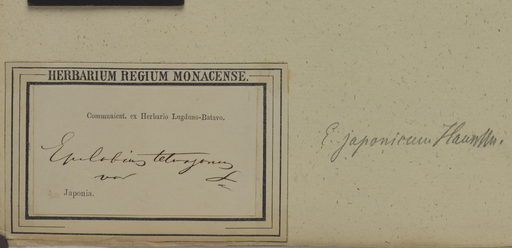 HERBARIUM REGIUM MONACENSE.
Communicat. ex Herbario Lugduno-Batavo.
Epilobium tetragonum
var
Japonia.
E. japonicum Hausskn.